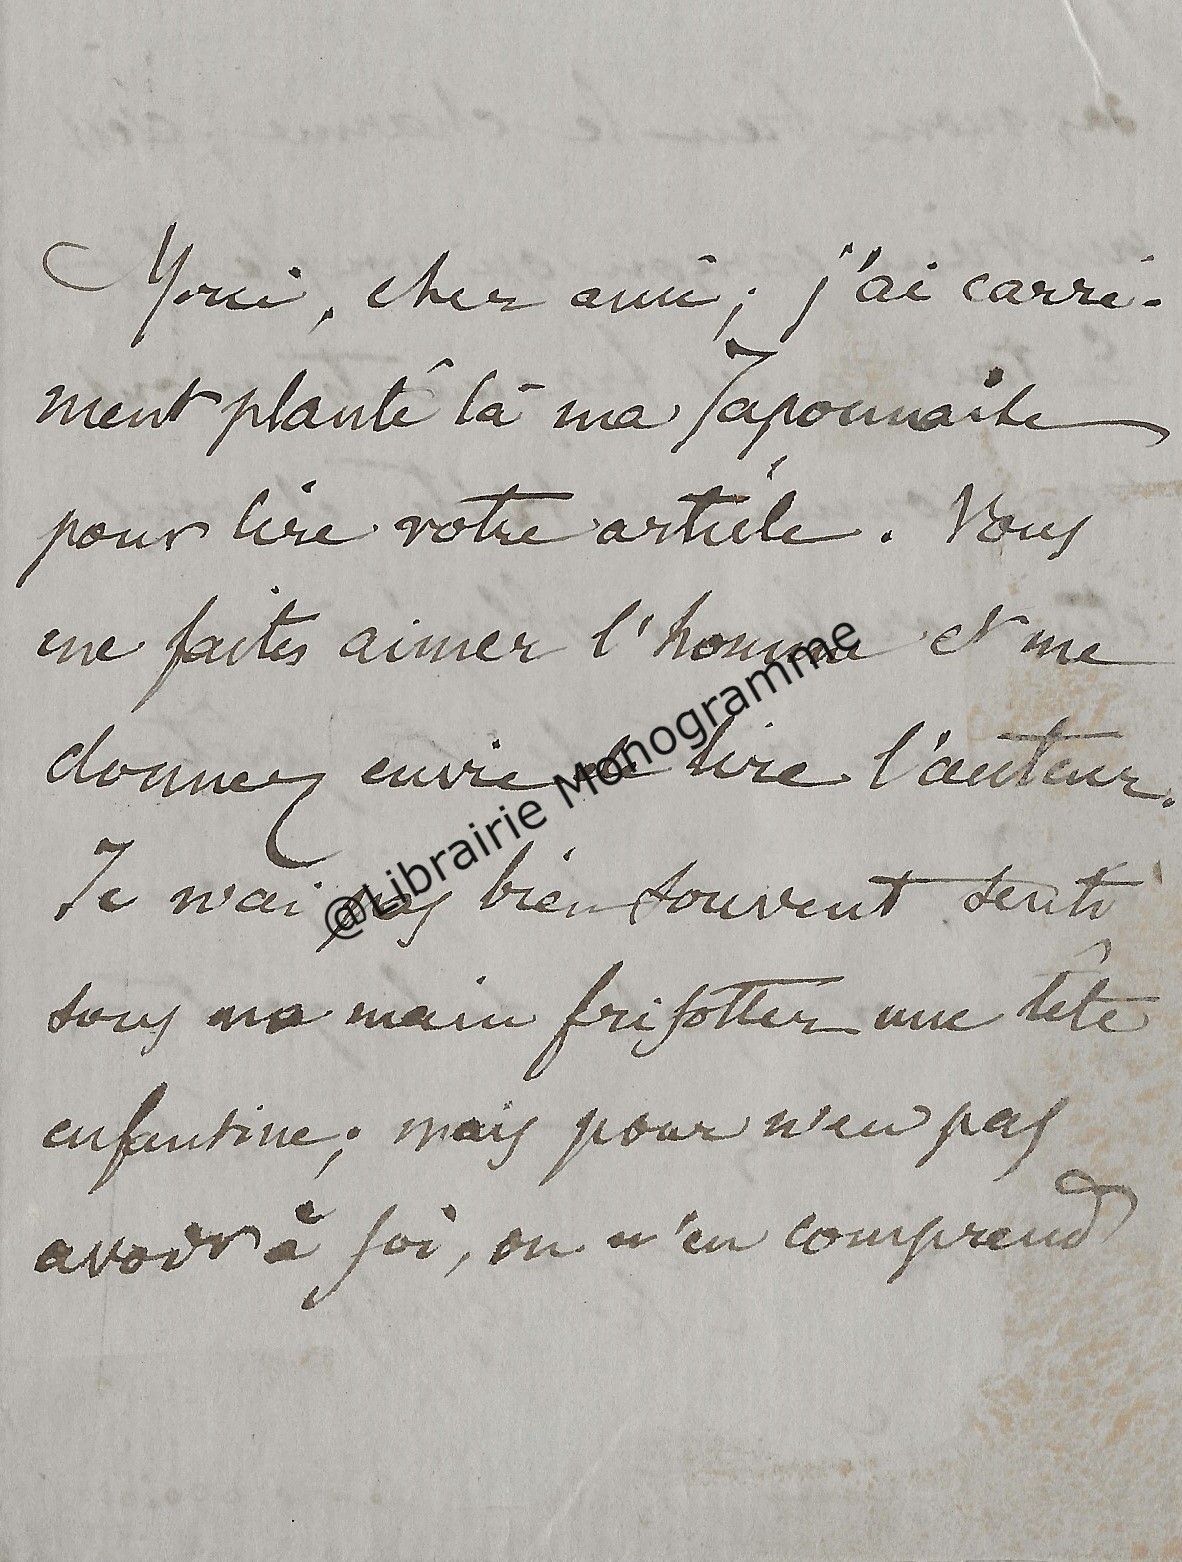 Merci, cher ami; j'ai carré-
ment planté là ma Japonnaise
pour lire votre article. Vous
me faites aimer l'homme et me
donnez envie de lire l'auteur.
Je n'ai pas bien souvent senti
sous ma main frisotter une tête
enfantine; mais pour n'en pas
avoir à soi, on n'en comprend
@Librairie Monogramme